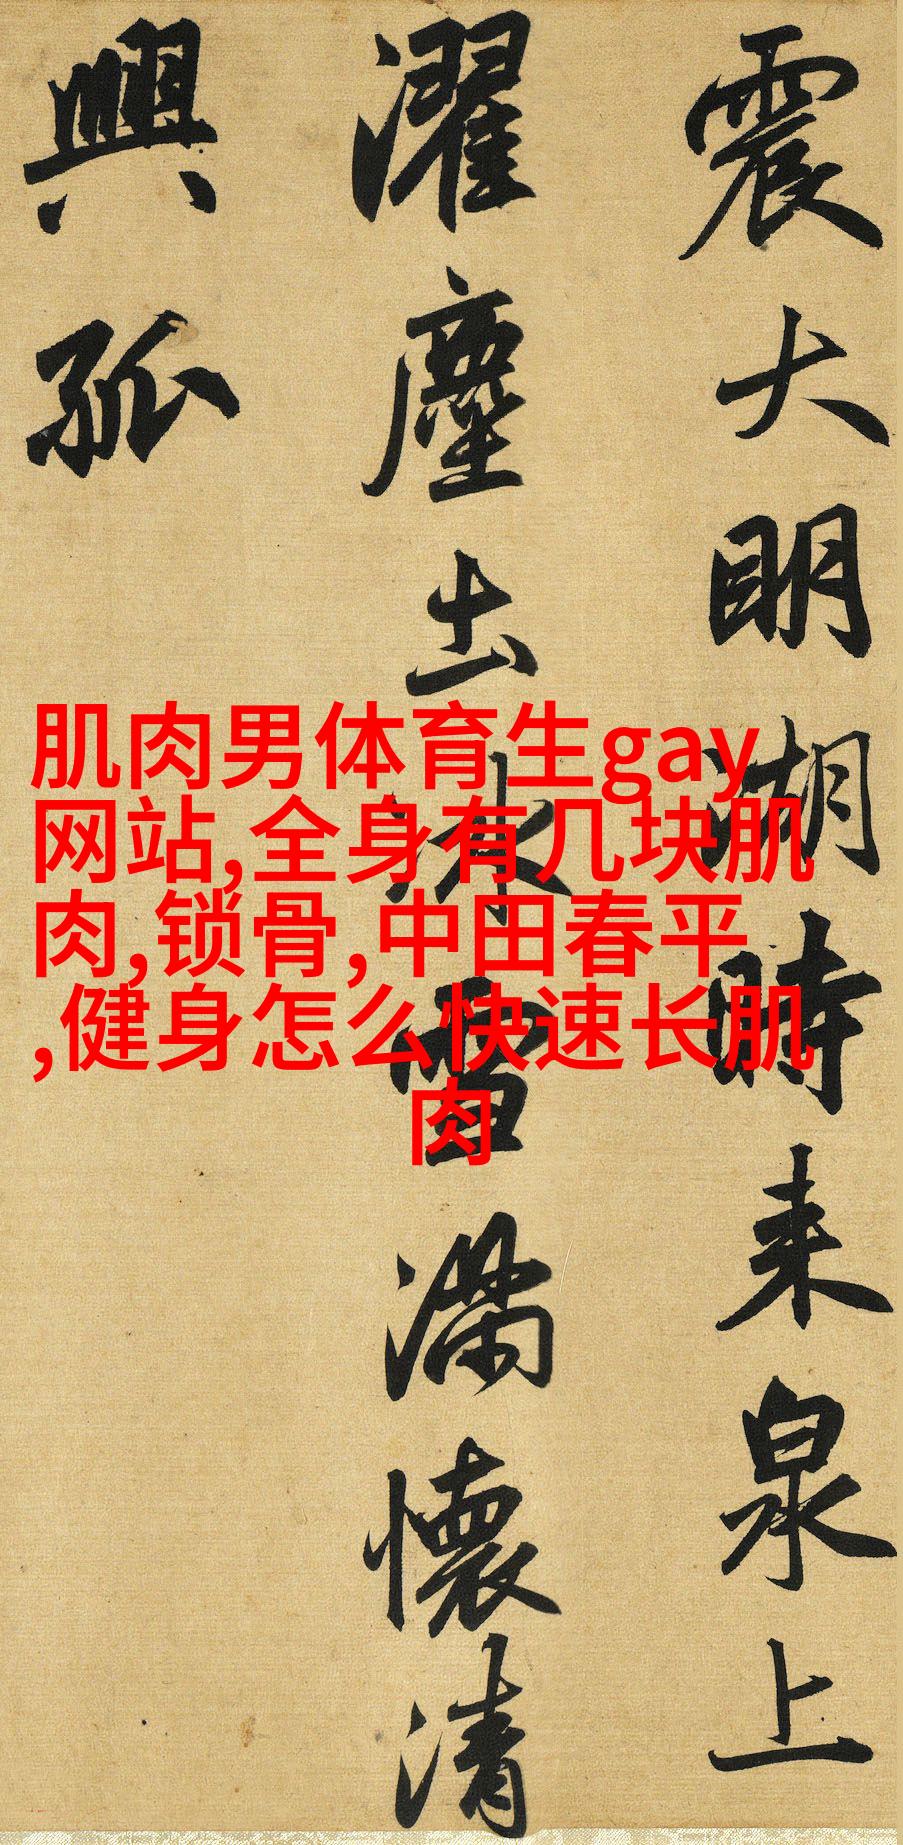 震大明湖時来泉上
濯塵土冰雪滿懷清
興孤
肌肉男体育生gay
网站,全身有几块肌
肉,锁骨,中田春平
,健身怎么快速长肌
肉